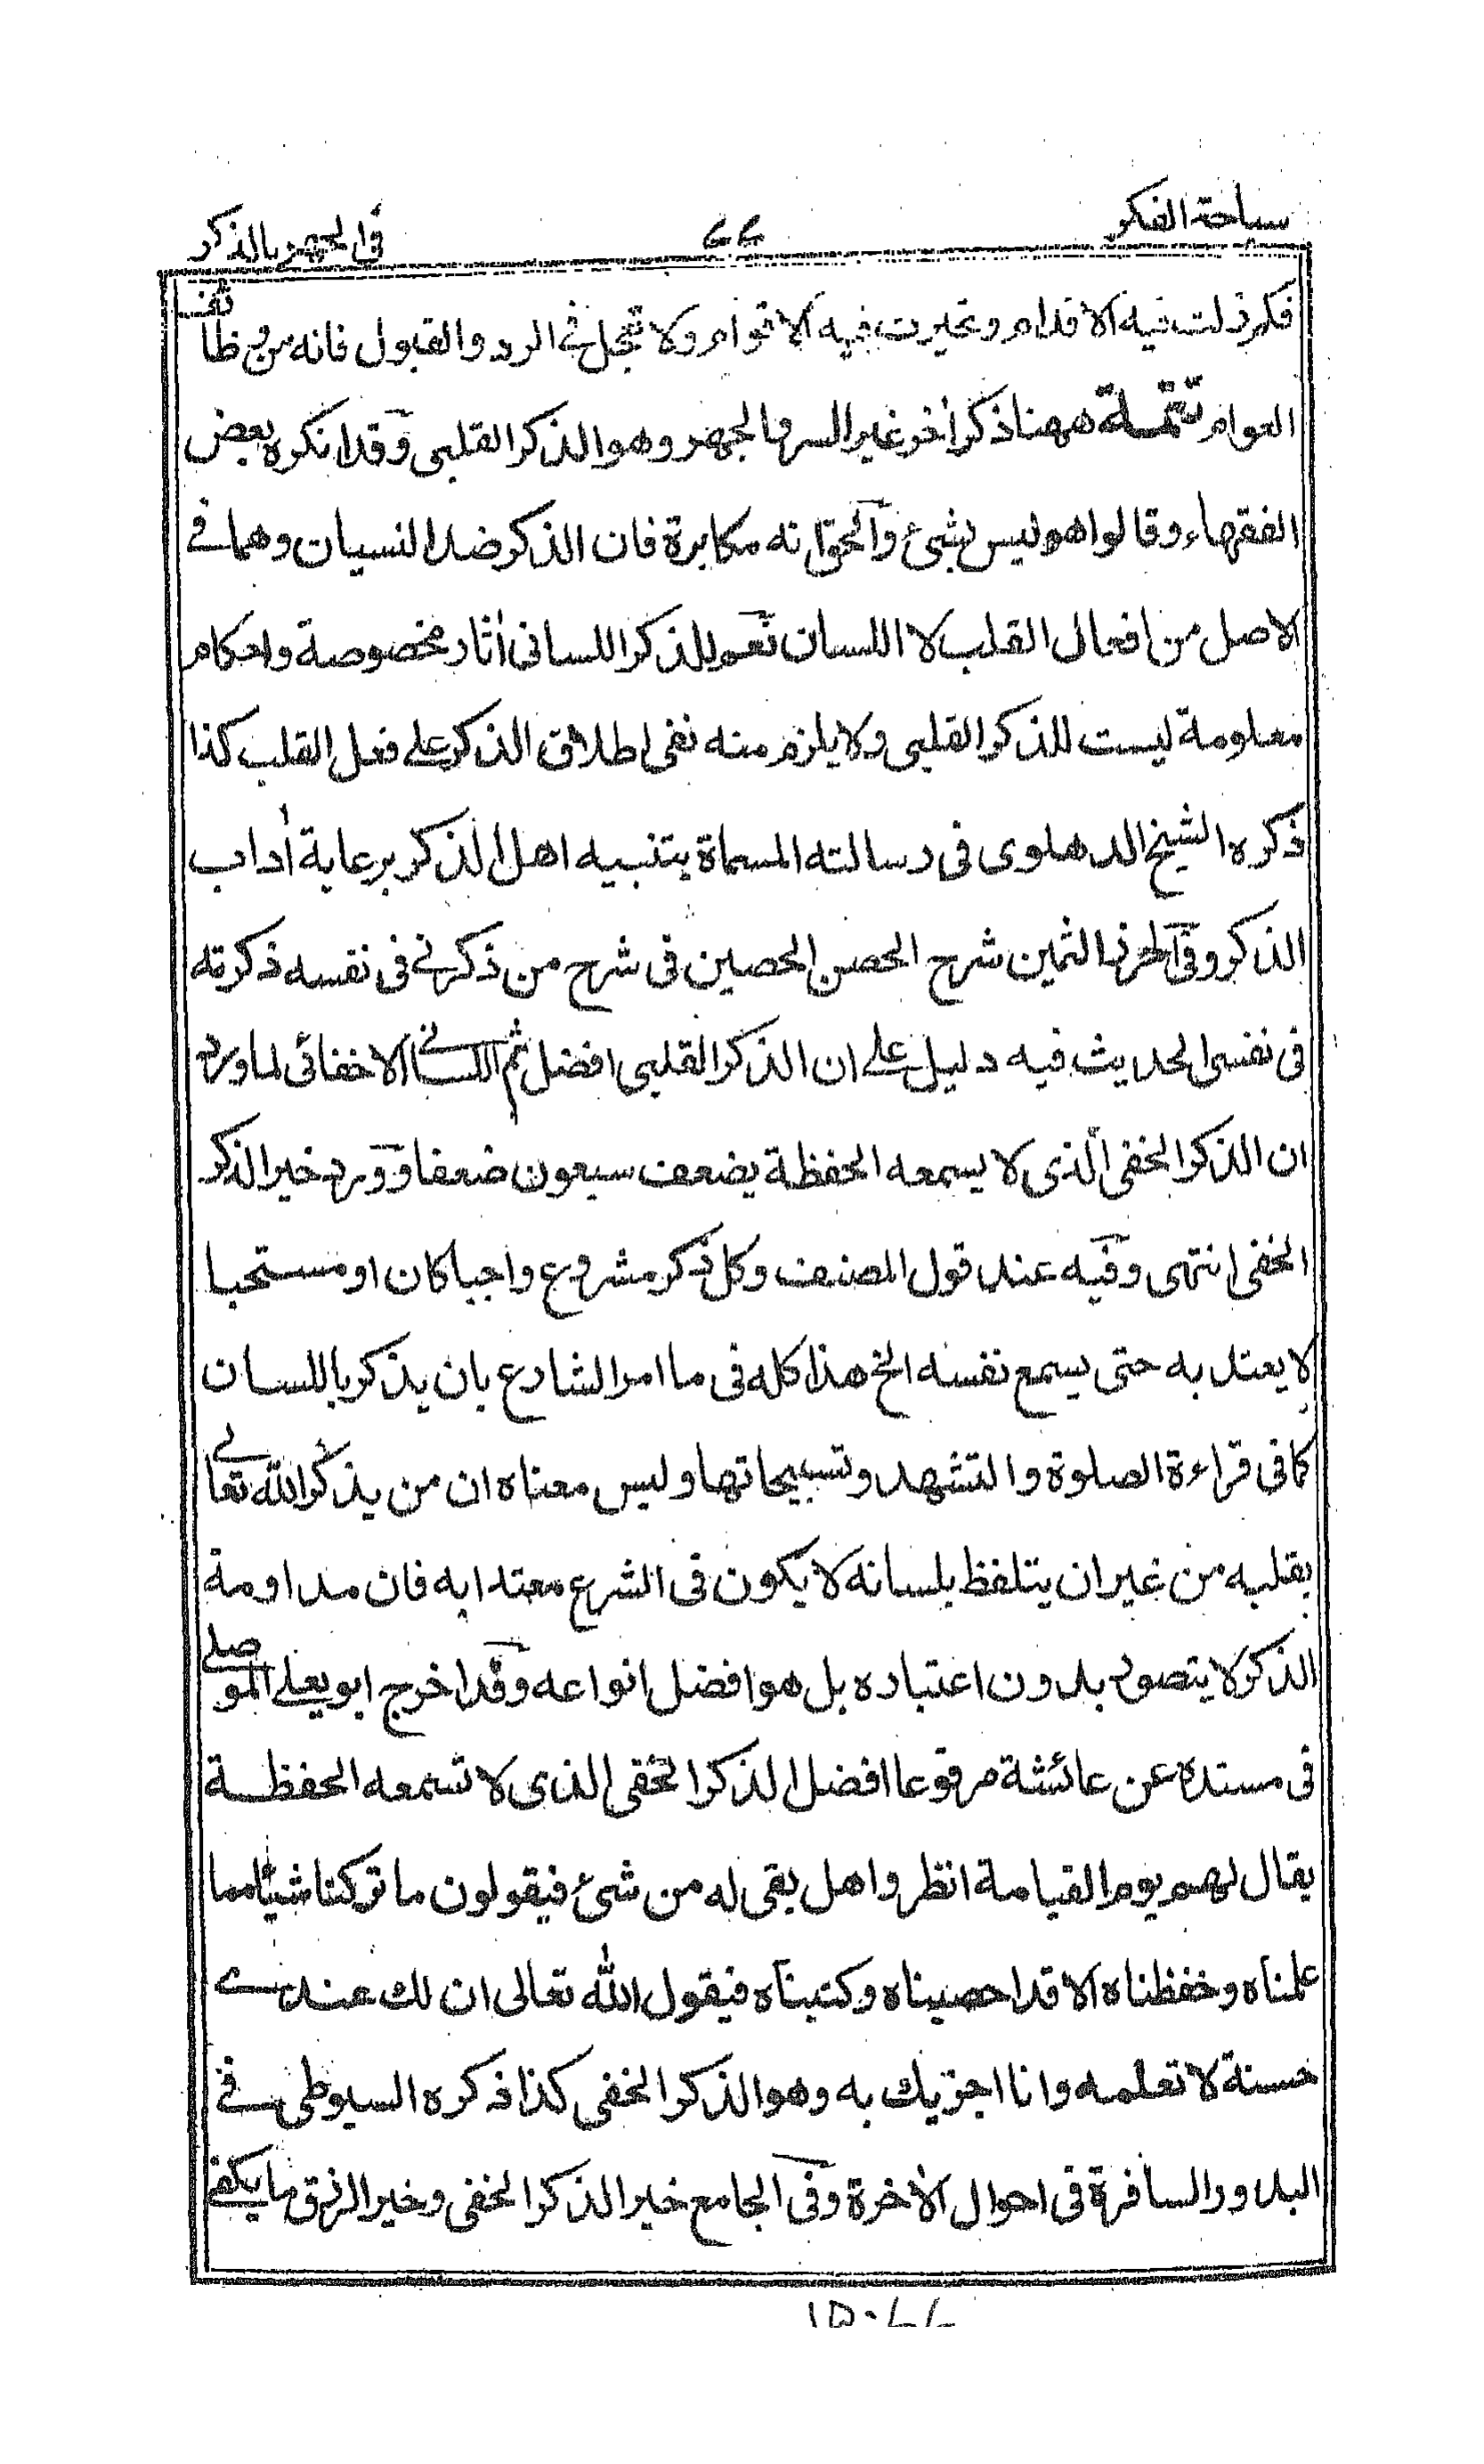 سباحة الفكر ٤٤ في الجهر بالذكر
فكم زلت فيه الاقدام وتحيرت فيه الاقوام ولا تعجل في الرد والقبول فانه من وظائف
العوام تتمة ههنا ذكر أخر غير السر والجهر وهو الذكر القلبي وقد انكره بعض
الفقهاء وقالوا هو ليس بشئ والحق انه مكابرة فان الذكر ضد النسيان وهما في
الاصل من افعال القلب لا اللسان نعم للذكر اللساني أثار مخصوصة واحكام
معلومة ليست للذكر القلبي ولا يلزم منه نفي اطلاق الذكر على فعل القلب كذا
ذكره الشيخ الدهلوي في رسالته المسماة بتنبيه اهل الذكر برعاية أداب
الذكر وفي الحرز الثمين شرح الحصن الحصين في شرح من ذكرني في نفسه ذكرته
في نفسي الحديث فيه دليل على ان الذكر القلبي افضل ثم اللساني الاخفائي لما ورد
ان الذكر الخفي الذي لا يسمعه الحفظة يضعف سبعون ضعفا وورد خير الذكر
الخفي انتهى وفيه عند قول المصنف وكل ذكر مشروع واجبا كان او مستحبا
لا يعتد به حتى يسمع نفسه الخ هذا كله في ما امر الشارع بان يذكر باللسان
كما في قراءة الصلوة والتشهد وتسبيحاتها وليس معناه ان من يذكر الله تعالى
بقلبه من غير ان يتلفظ بلسانه لا يكون في الشرع معتدا به فان مداومة
الذكر لا يتصور بدون اعتباره بل هو افضل انواعه وقد اخرج ابو يعلى الموصلي
في مسنده عن عائشة مرفوعا افضل الذكر الخفي الذي لا تسمعه الحفظة
يقال لهم يوم القيامة انظروا هل بقي له من شئ فيقولون ما تركنا شيئا مما
علمناه وحفظناه الا قد احصيناه وكتبناه فيقول الله تعالى ان لك عندي
حسنة لا تعلمه وانا اجزيك به وهو الذكر الخفي كذا ذكره السيوطي في
البدور السافرة في احوال الأخرة وفي الجامع خير الذكر الخفي وخير الرزق ما يكفي